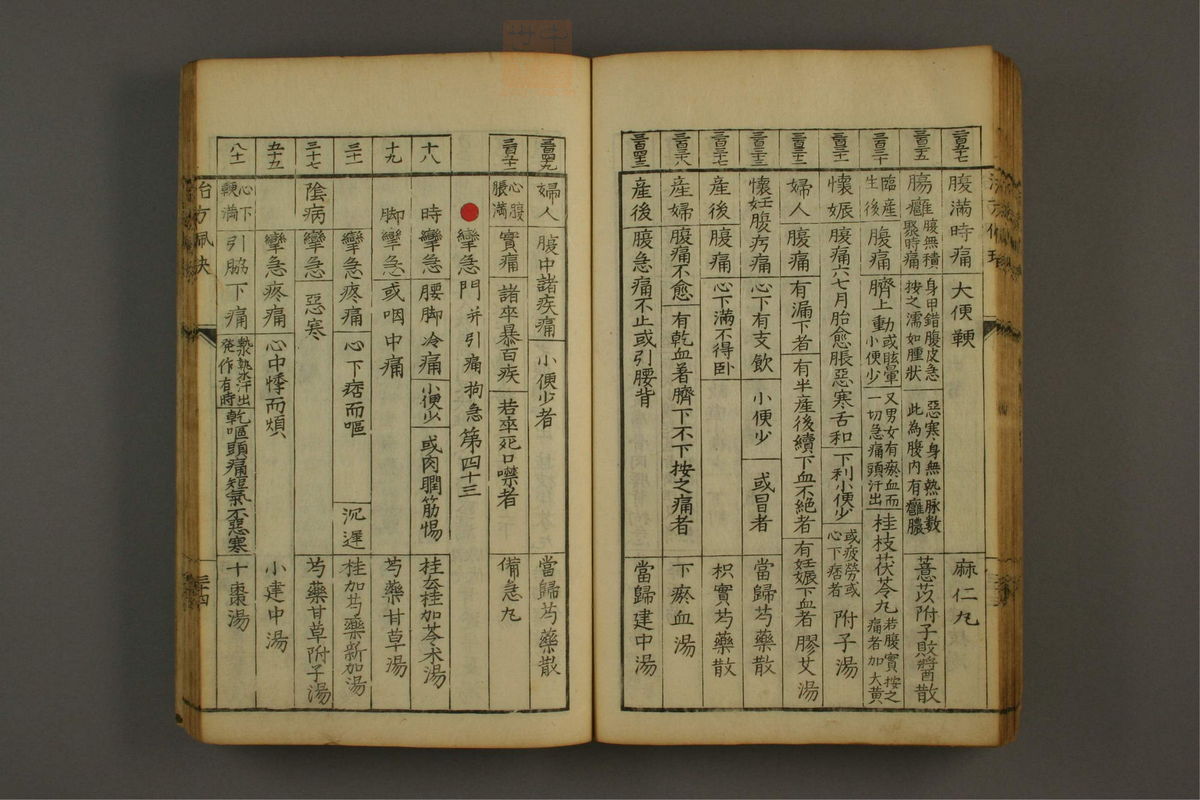 腹滿時痛 大便鞕 麻仁丸
腸癰 腹無積聚時痛 身甲錯腹皮急按之濡如腫狀 惡寒身無熱脉數此為腹內有癰膿 薏苡附子敗醬散
臨産生後 腹痛 臍上動或眩暈小便少 又男女有瘀血而一切急痛頭汗出 桂枝茯苓丸 若腹實按之痛者加大黃
懷娠 腹痛六七月胎愈脹惡寒舌和 下利小便少 或疲勞或心下痞者 附子湯
婦人 腹痛 有漏下者 有半産後續下血不絕者 有妊娠下血者 膠艾湯
懷妊腹㽲痛 心下有支飲 小便少 或冒者 當歸芍藥散
産後 腹痛 心下滿不得卧 枳實芍藥散
産婦 腹痛不愈 有乾血著臍下不下按之痛者 下瘀血湯
産後 腹急痛不止或引腰背 當歸建中湯
婦人 腹中諸疾痛 小便少者 當歸芍藥散
心腹脹滿 實痛 諸卒暴百疾 若卒死口噤者 備急丸
攣急門 并引痛拘急 第四十三
十八 時攣急 腰脚冷痛 小便少 或肉瞤筋惕 桂去桂加苓朮湯
十九 脚攣急 或咽中痛 芍藥甘草湯
攣急疼痛 心下痞而嘔 沉遲 桂加芍藥新加湯
三十七 陰病 攣急 惡寒 芍藥甘草附子湯
五十九 攣急疼痛 心中悸而煩 小建中湯
八十一 心下鞕滿 引脇下痛 漐漐汗出發作有時 乾嘔頭痛短氣不惡寒 十棗湯